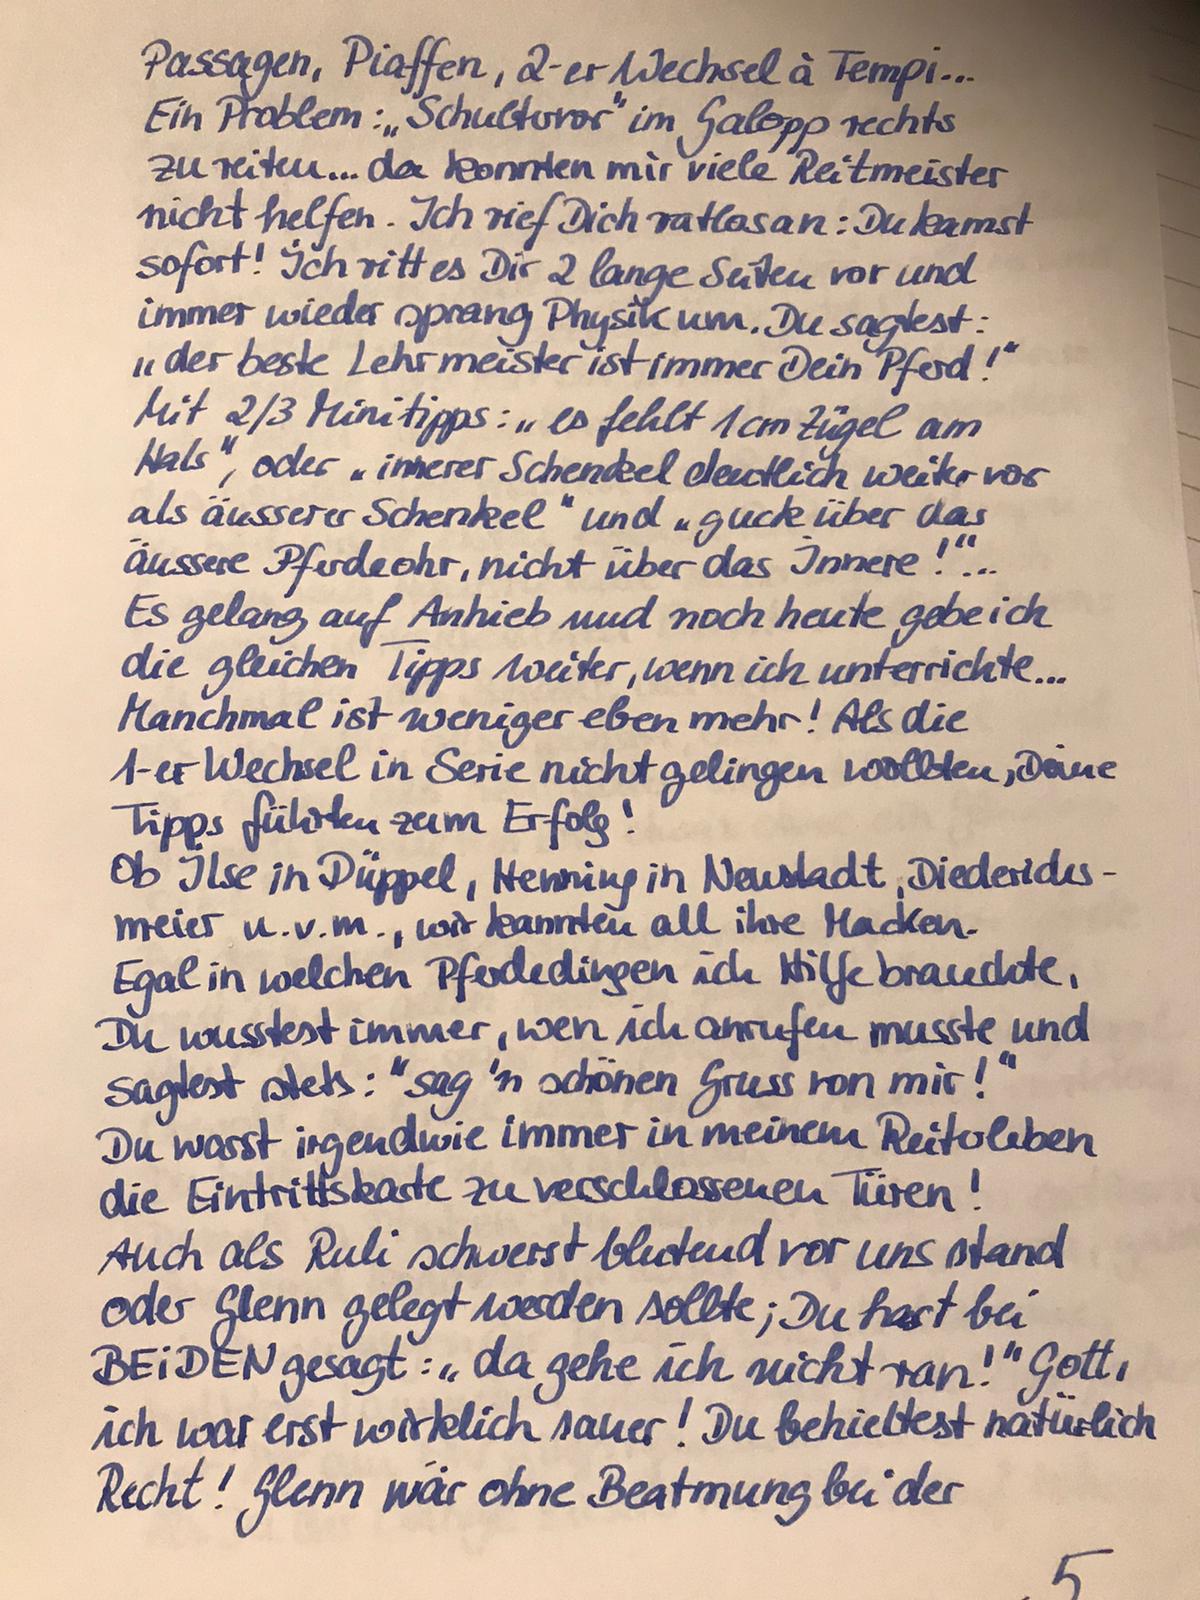 Passagen, Piaffen, 2-er Wechsel à Tempi...
Ein Problem: „Schultervor" im Galopp rechts
zu reiten... da konnten mir viele Reitmeister
nicht helfen. Ich rief Dich ratlos an: Du kamst
sofort! Ich ritt es Dir 2 lange Seiten vor und
immer wieder sprang Physik um. Du sagtest:
„der beste Lehrmeister ist immer Dein Pferd!"
Mit 2/3 Minitipps: „es fehlt 1cm Zügel am
Hals", oder „innerer Schenkel deutlich weiter vor
als äusserer Schenkel" und „guck über das
äussere Pferdeohr, nicht über das Innere!"...
Es gelang auf Anhieb und noch heute gebe ich
die gleichen Tipps weiter, wenn ich unterrichte...
Manchmal ist weniger eben mehr! Als die
1-er Wechsel in Serie nicht gelingen wollten, Deine
Tipps führten zum Erfolg!
Ob Ilse in Düppel, Henning in Neustadt, Diederichs-
meier u.v.m., wir kannten all ihre Macken.
Egal in welchen Pferdedingen ich Hilfe brauchte,
Du wusstest immer, wen ich anrufen musste und
sagtest stets: "sag 'n schönen Gruss von mir!"
Du warst irgendwie immer in meinem Reiterleben
die Eintrittskarte zu verschlossenen Türen!
Auch als Ruli schwerst blutend vor uns stand
oder Glenn gelegt werden sollte; Du hast bei
BEIDEN gesagt: „da gehe ich nicht ran!" Gott,
ich war erst wirklich sauer! Du behieltest natürlich
Recht! Glenn wär ohne Beatmung bei der
5